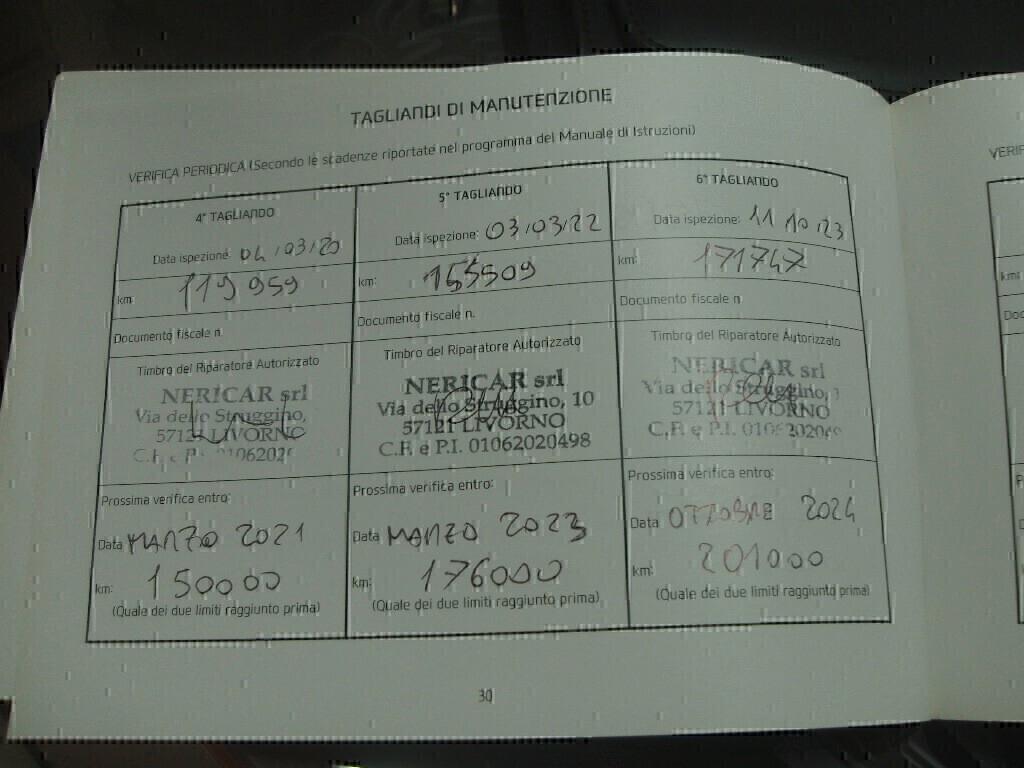 TAGLIANDI DI MANUTENZIONE
VERIFICA PERIODICA (Secondo le scadenze riportate nel programma del Manuale di Istruzioni)
4° TAGLIANDO
Data ispezione: 04/03/20
km: 119 959
Documento fiscale n.
Timbro del Riparatore Autorizzato
NERICAR srl
Via dello Struggino,
57121 LIVORNO
Prossima verifica entro:
Data MARZO 2021
km: 150000
(Quale dei due limiti raggiunto prima)
5° TAGLIANDO
Data ispezione: 03/03/22
km: 155509
Documento fiscale n.
Timbro del Riparatore Autorizzato
NERICAR srl
Via dello Struggino, 10
57121 LIVORNO
C.F. e P.I. 01062020498
Prossima verifica entro:
Data MARZO 2023
km: 176000
(Quale dei due limiti raggiunto prima)
6° TAGLIANDO
Data ispezione: 11 10/23
km: 171747
Documento fiscale n
Timbro del Riparatore Autorizzato
NERICAR srl
Via dello Struggino,
57121 LIVORNO
C.F. e P.I.
Prossima verifica entro:
Data OTTOBRE 2024
km: 201000
(Quale dei due limiti raggiunto prima)
30
VERIF
km: